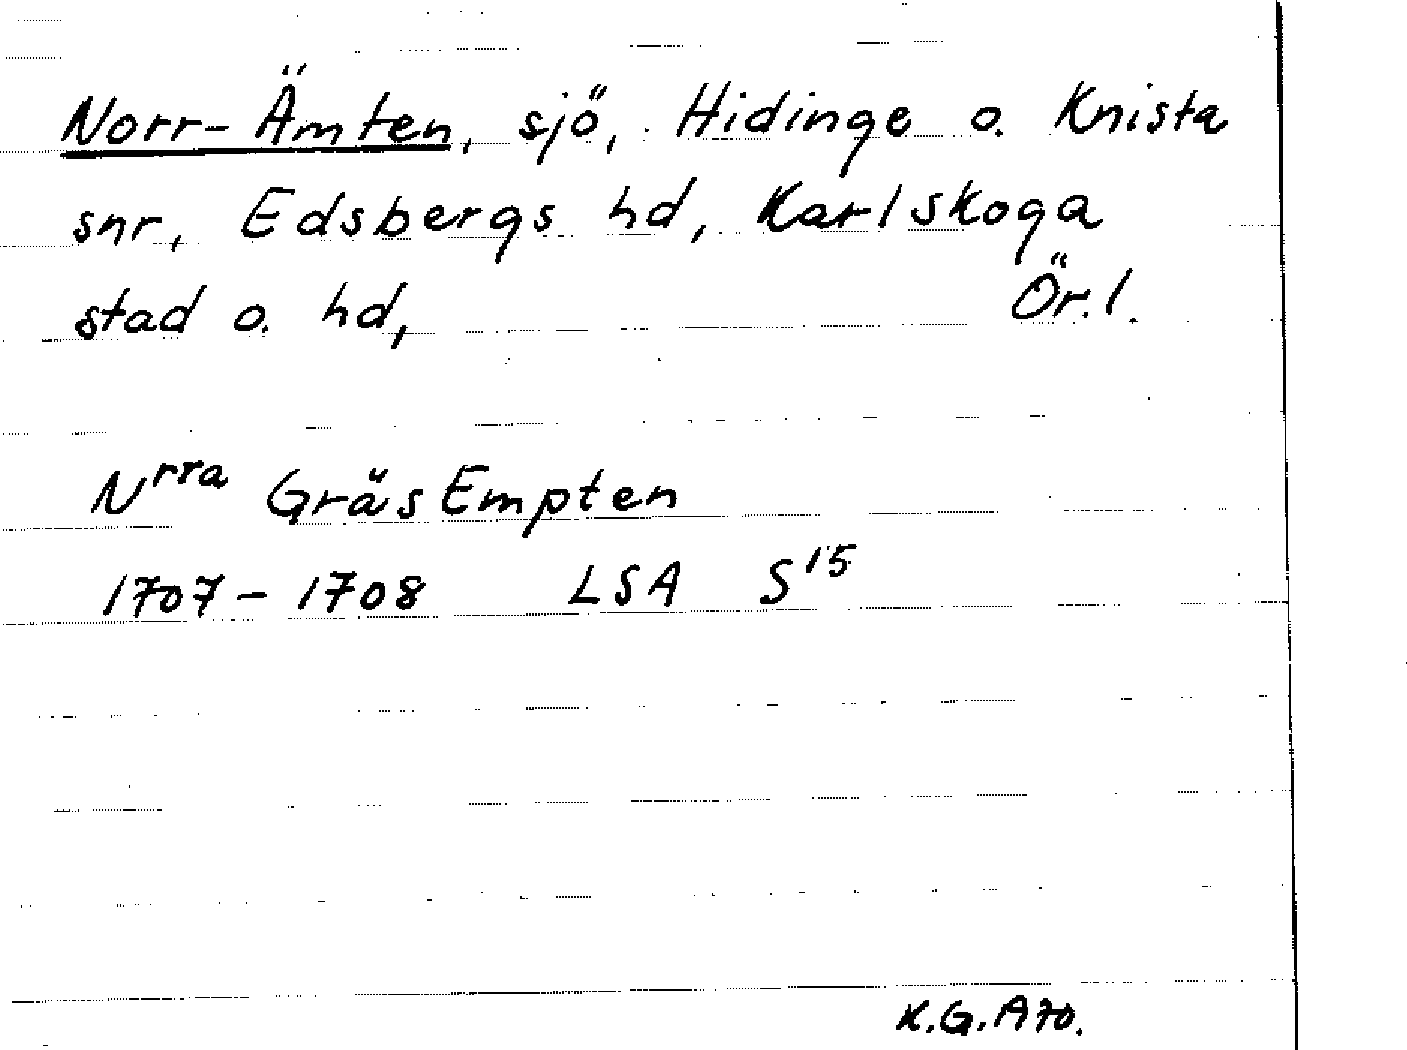 Norr-Ämten, sjö, Hidinge o. Knista
snr, Edsbergs hd, Karlskoga
stad o. hd, Ör.l.
Nrra GräsEmpten
1707-1708 LSA S15
K.G.A 70.